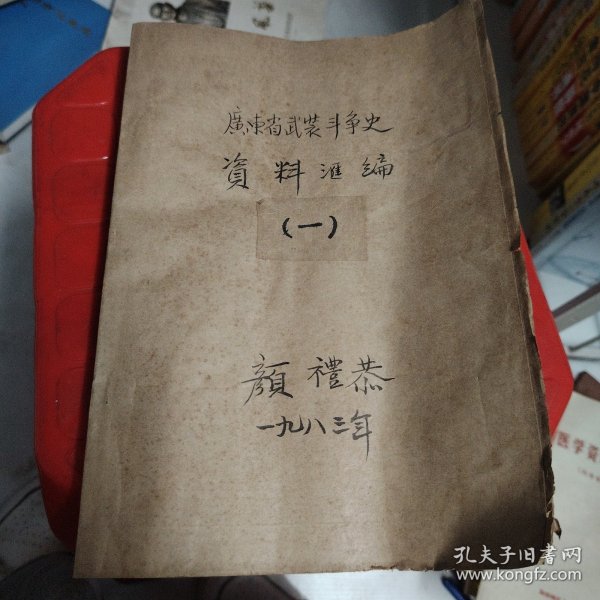 廣東省武裝斗争史
資料滙編
(一)
顏禮恭
一九八三年
医学資
孔夫子旧書网
www.kongfz.com